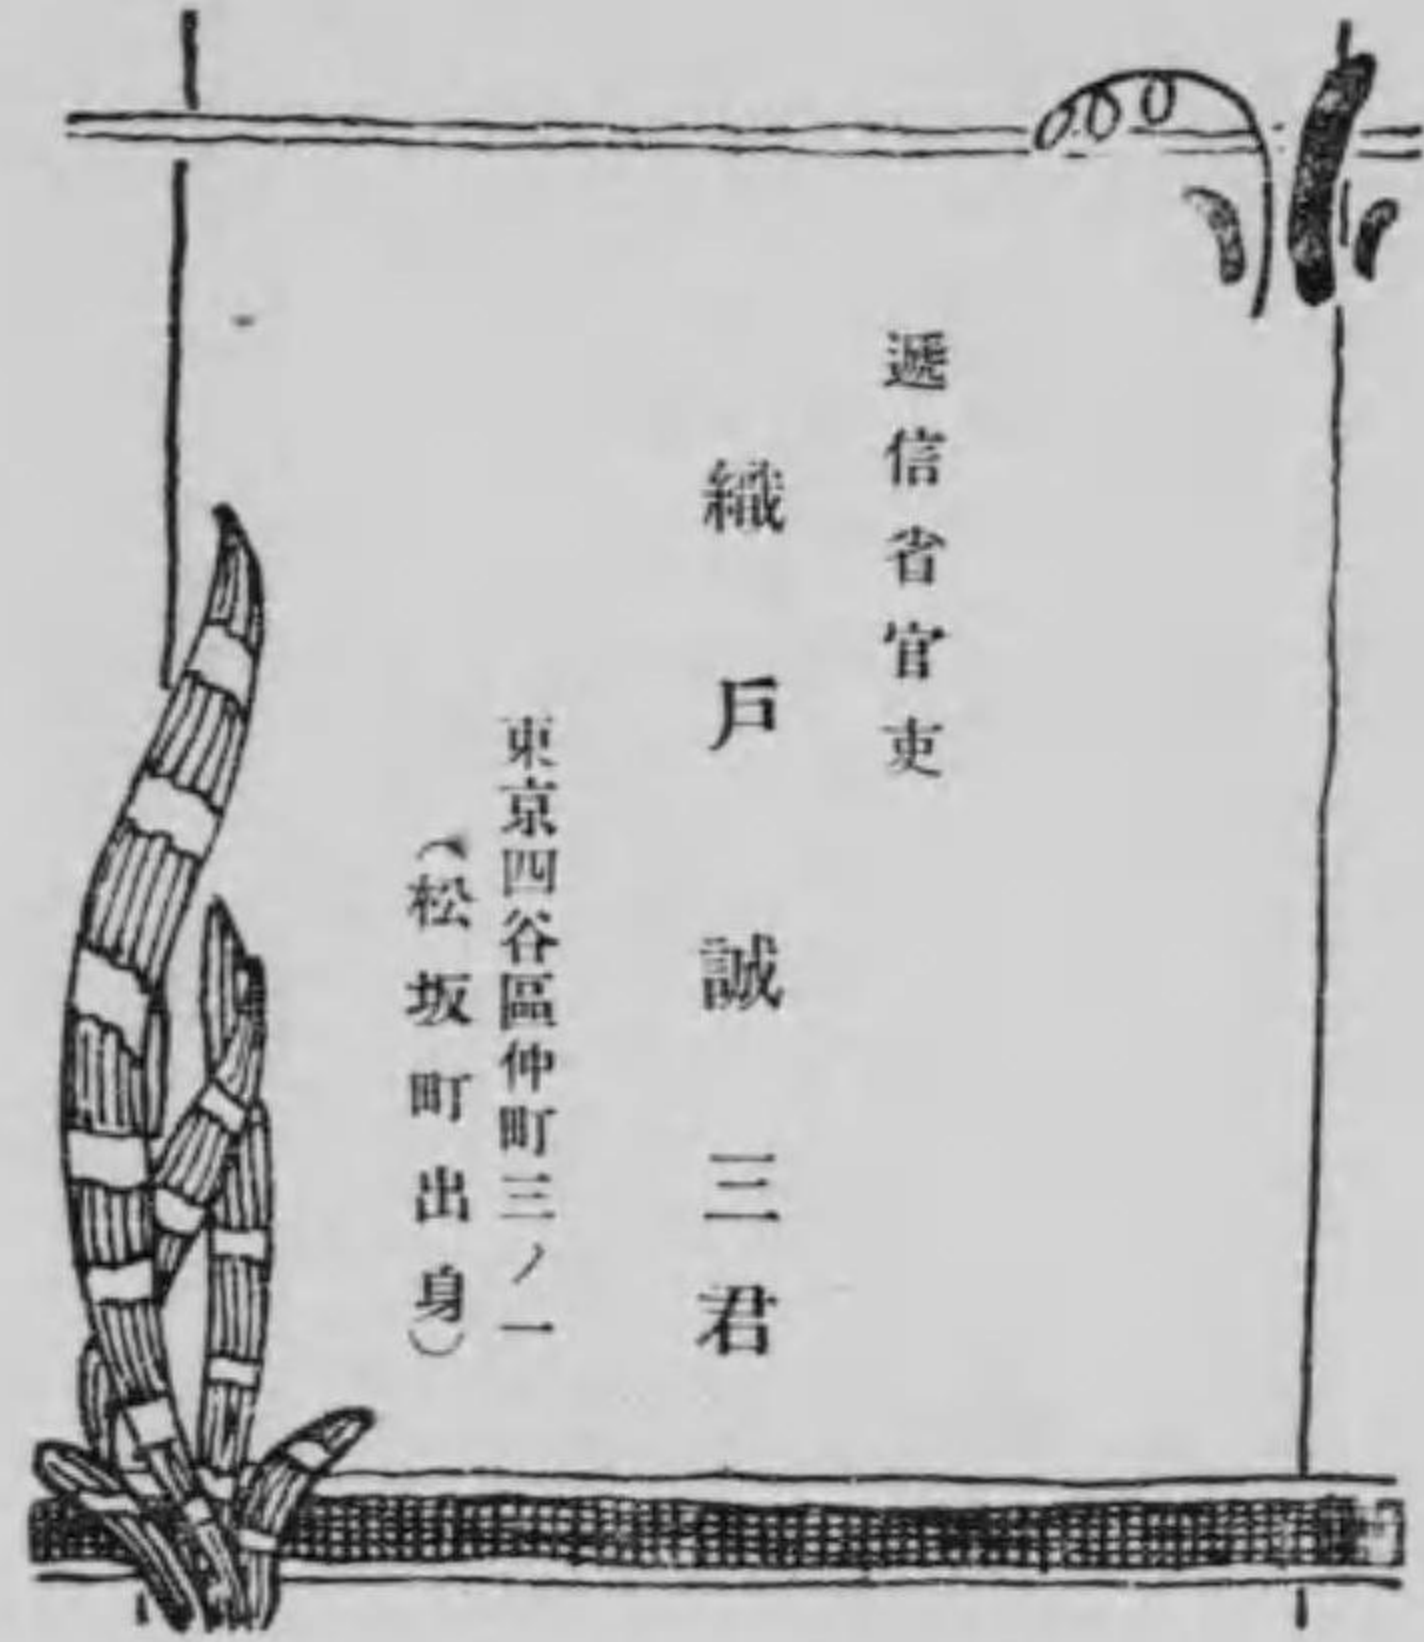 遞信省官吏
織戶誠三君
東京四谷區仲町三ノ一
(松坂町出身)